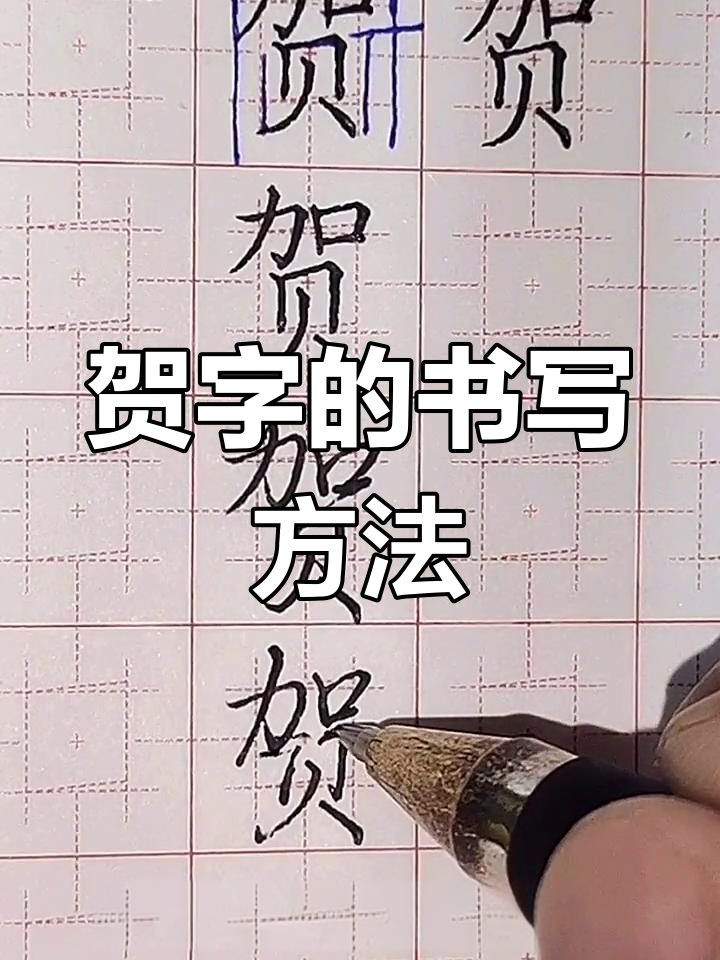 贺 贺
贺
贺字的书写
贺
方法
贺